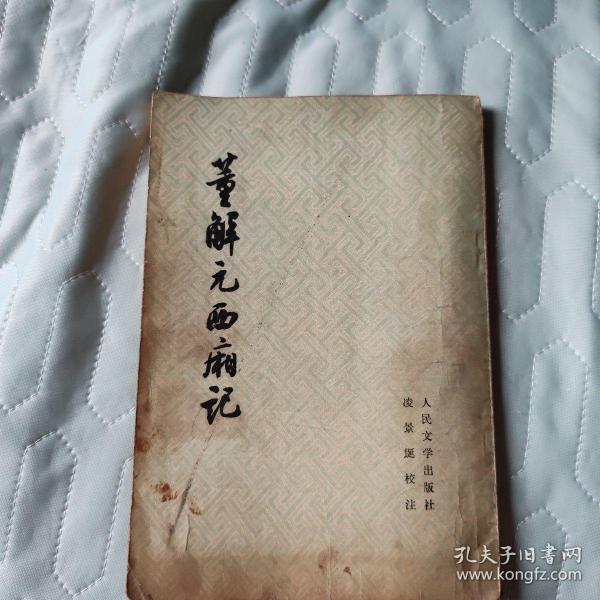 董解元西厢记
人民文学出版社
凌景埏校注
孔夫子旧书网
www.kongfz.com